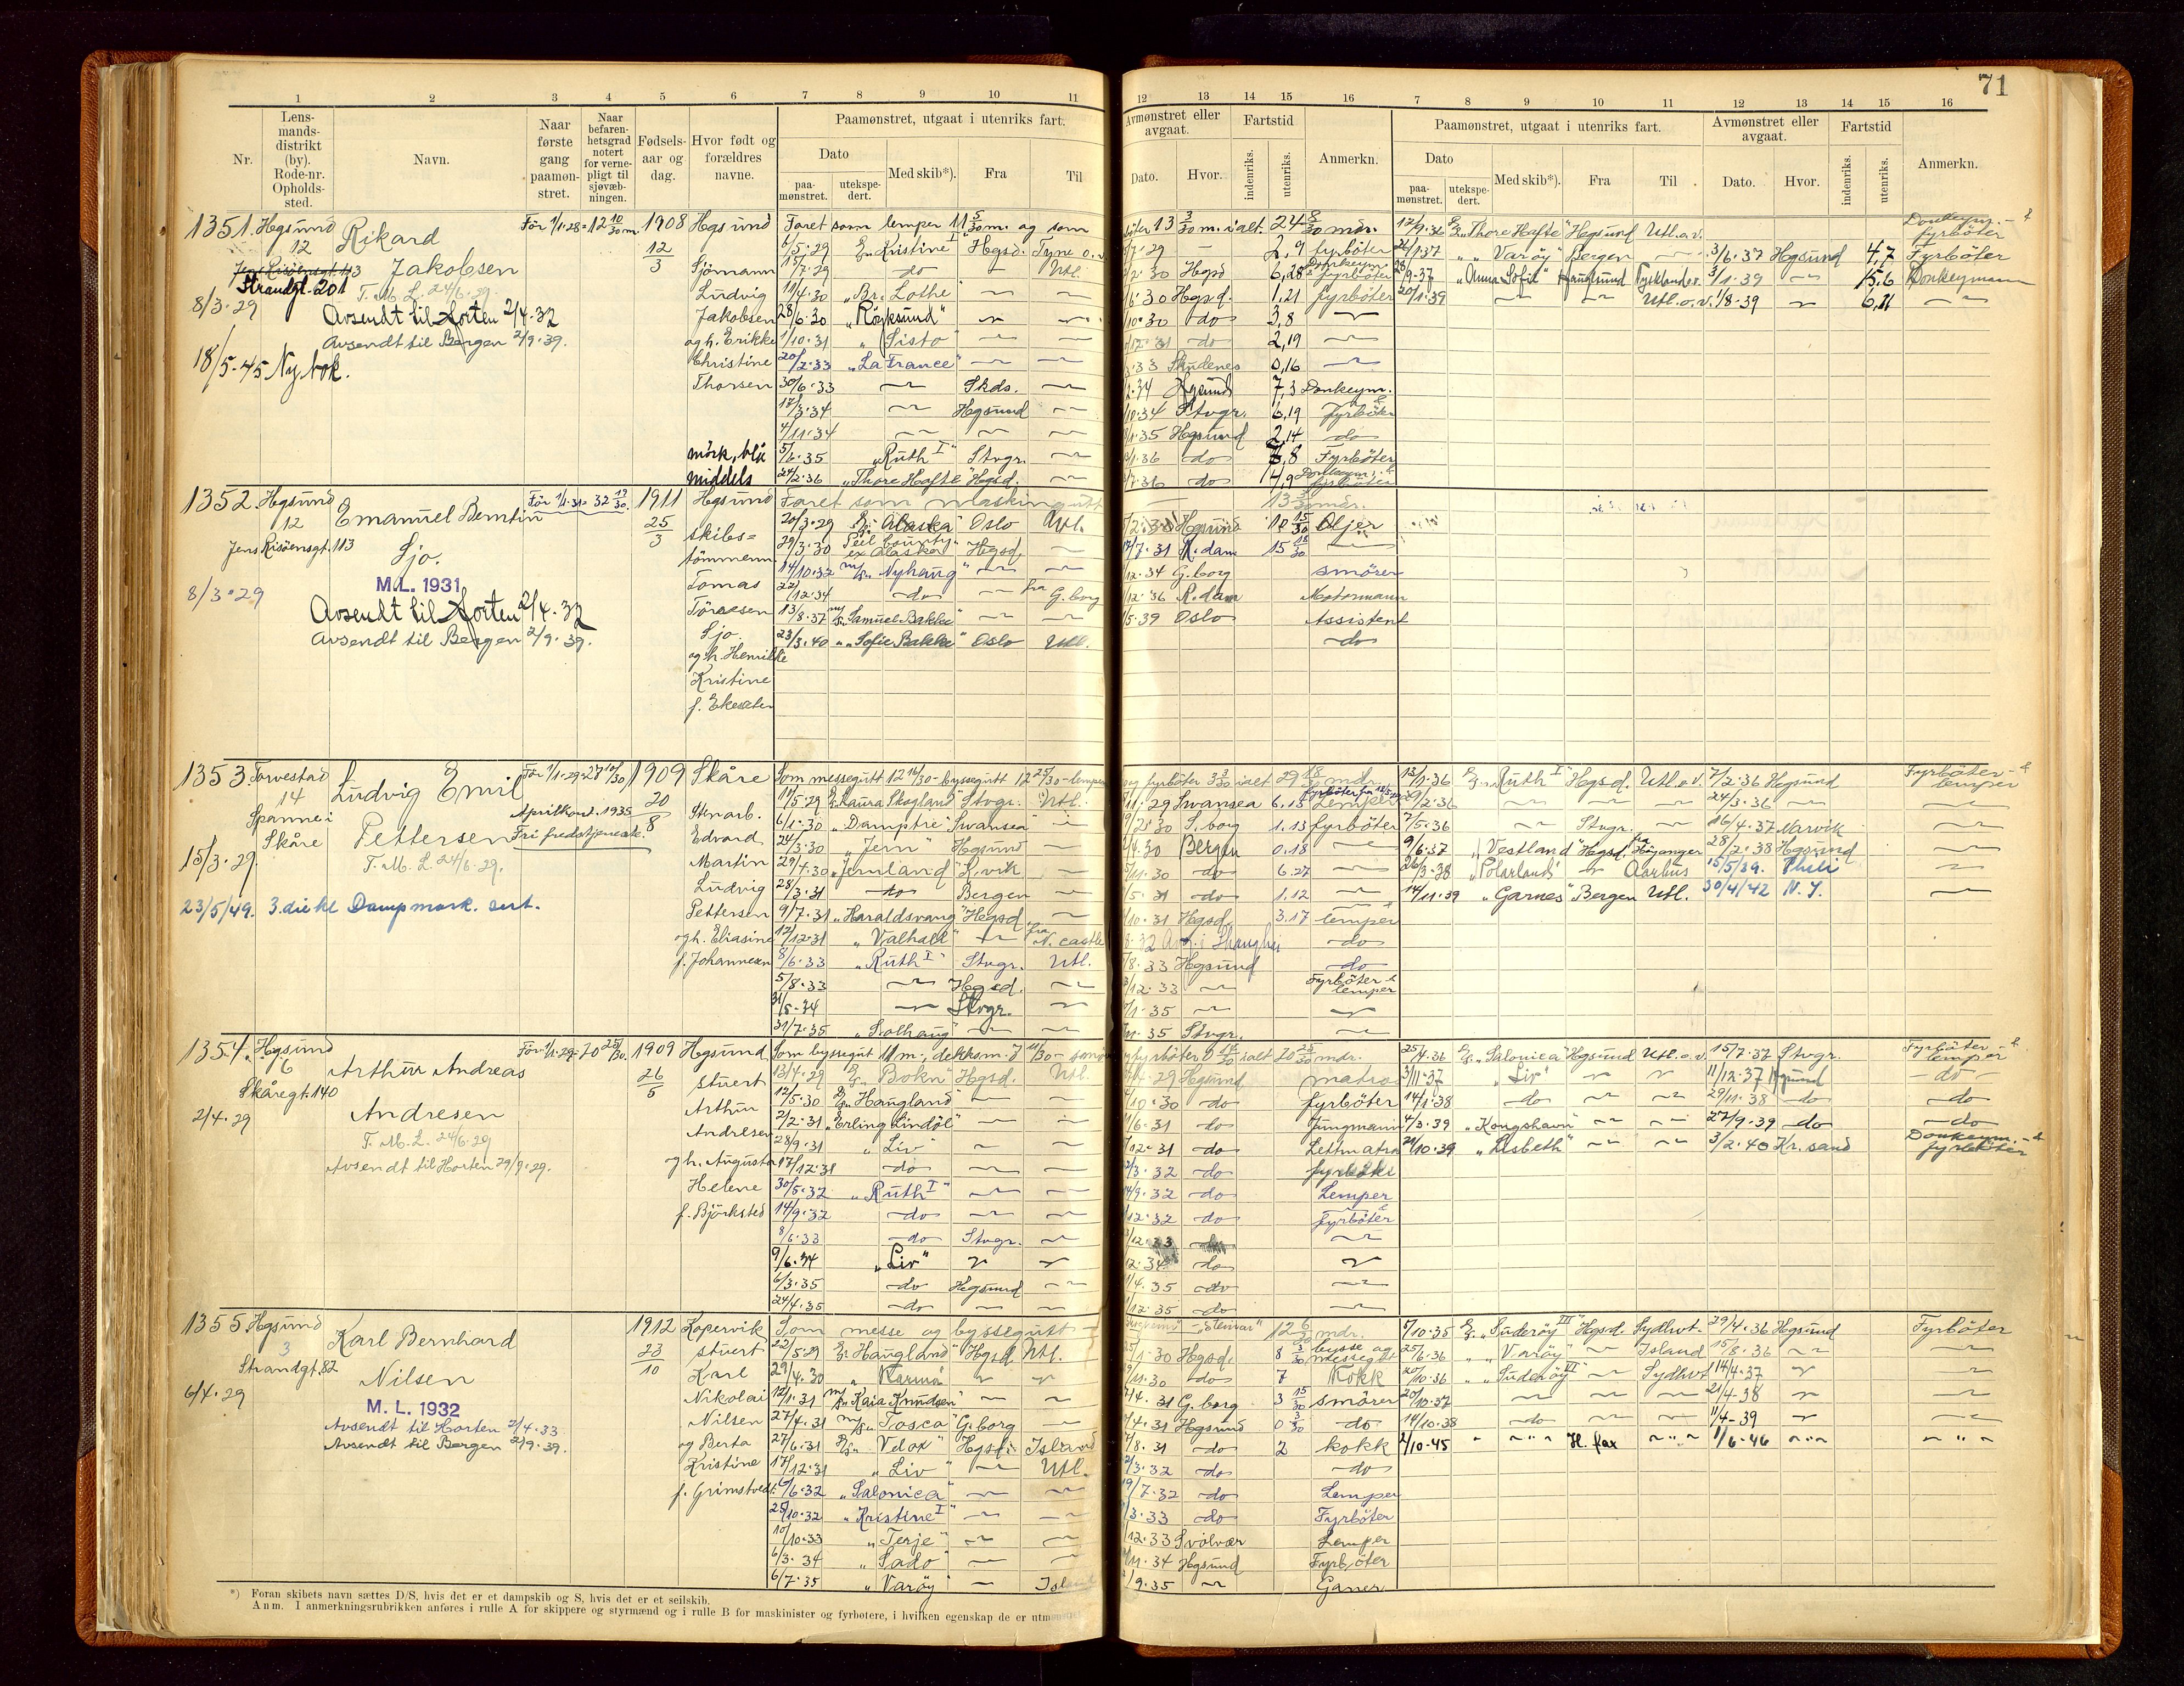 71
1 2 3 4 5 6 7 8 9 10 11
12 13 14 15 16 7 8 9 10 11 12 13 14 15 16
Nr.
Lens-
mands-
distrikt
(by).
Rode-nr.
Opholds-
sted.
Navn.
Naar
første
gang
paamøn-
stret.
Naar
befaren-
hetsgrad
notert
for verne-
pligt til
sjøvæb-
ningen.
Fødsels-
aar og
dag.
Hvor født og
forældres
navne.
Paamønstret, utgaat i utenriks fart.
Dato
paa-
mønstret.
utekspe-
dert.
Med skib*).
Fra
Til
Avmønstret eller
avgaat.
Dato.
Hvor.
Fartstid
indenriks.
utenriks.
Anmerkn.
Paamønstret, utgaat i utenriks fart.
Dato
paa-
mønstret.
utekspe-
dert.
Med skib*).
Fra
Til
Avmønstret eller
avgaat.
Dato.
Hvor.
Fartstid
indenriks.
utenriks.
Anmerkn.
1351. Hgsund
12
Rikard
Jakobsen
Strandgt. 201
T. M. L. 24/6.29.
8/3.29
Avsendt til Horten 2/4.32
Avsendt til Bergen 2/9.39.
18/5-45 Ny bok.
1908
12
3
Hgsund
Sjömann
Ludvig
Jakobsen
og h. Erikke
Christine
Thorsen
mörk, blå
middels
Faret som lemper 11 5/30 m. og som
6/5.29 "Kristine I" Hgsd. Tyne o.v.
11/4.30 "Br. Lothe"
28/6.30 "Röyksund"
1/10.31 "Sisto"
20/2.33 "La France"
30/6.33 Skds.
17/3.34 Hgsund
4/11.34
5/6.35 "Ruth I" Stvgr.
24/2.36 "Thore Hafte" Hgsd.
13 3/30 m. ialt 24 8/30 mdr.
2,9 fyrböter
30 Hgsd 6,28 Donkeym. & fyrböter
30 Hgsd. 1,21 fyrböter
30 do 3,8
do 2,19
33 Skudenes 0,16
34 Hgsund 7,3 Donkeym.
34 Stvgr. 6,19 & fyrböter
35 Hgsund 2,14 do
36 do 8 Fyrböter
36 do 4,9 Donkeym. & fyrböter
17/9.36 "Thore Hafte" Hgsund Utl. o.v. Donkeym. & fyrböter
"Varöy" Bergen 3/6.37 Hgsund 4,7 Fyrböter
9-37 "Anna Sofie" Haugesund Tyskland o.v. 3/1.39 15,6 Donkeymann
20/1.39 Utl. o.v. 1/8-39
1352. Hgsund
12
Jens Risöensgt. 113
Emanuel Berntin
Sjo.
M.L. 1931
8/3.29
Avsendt til Horten 2/4.32
Avsendt til Bergen 2/9.39.
1911
25
3
Hgsund
skibs=
tömmerm.
Tomas
Sjo
og h. Henrikke
Kristine
Faret som maskingutt 13 mdr.
20/3.29 "Alaska" Oslo Utl.
29/3.30 ex Alaska Hgsd.
14/10.32 M/S "Nyhaug"
22/12.34 do fra G.borg
13/8.37 M/S "Samuel Bakke"
23/3.40 "Sofie Bakke" Oslo Utl.
Hgsund 10 15/30 Oljer
7.31 R.dam 15 18/30
12.34 G.borg smörer
12.36 R.dam Motormann
5.39 Oslo Assistent
do
1353. Torvestad
14
Spanne i
Skåre
Ludvig Emil
Pettersen
T. M. L. 24/6.29.
15/3.29.
23/5/49. 3. die kl Dampmask. sert.
Aprilkont. 1935
Fri fredstjeneste.
1909
20
8
Skåre
Stenarb.
Edvard
Martin
Ludvig
Pettersen
og h. Eliasine
f. Johannesen
Som messegutt 12 14/30 - byssegutt 12 25/30 - lemper
11/5.29 "Laura Skogland" Stvgr. Utl.
6/1.30 "Damptre" Swansea
24/3.30 "Jern" Hgsund
29/4.30 "Jernland" L.vik
28/3.31 do Bergen
9/7.31 "Haraldsvang" Hgsd.
12/12.31 "Valhall" fra N.castle
8/6.33 "Ruth I" Stvgr. Utl.
5/8.33 Hgsd.
31/5-34 Stvgr.
31/7.35 "Solhaug"
og fyrböter ialt 29 18/30 mdr.
29 Swansea 6.15 Lemper
30 S.borg 1.13 fyrböter
30 Bergen 0.18
30 do 6.27
31 do 1.12
10.31 Hgsd. 3.17 lemper
32 Avg. i Shanghai do
8.33 Hgsund do
12.33 Fyrböter & lemper
35
35 Stvgr.
13/1.36 "Ruth I" Hgsd. Utl. o.v. 7/2.36 Hgsund Fyrböter & lemper
2.36 24/3.36
7/5.36 Stvgr. 16/4.37 Narvik
9/6.37 "Vestland" Hgsd. fra Höyanger 28/2.38 Hgsund
26/3.38 "Polarland" Aarhus 15/5/39. Phili
14/11.39 "Garnes" Bergen Utl. 30/4/42 N.Y.
1354. Hgsund
Skåregt. 140
2/4.29
Arthur Andreas
Andresen
T. M. L. 24/6.29
Avsendt til Horten 29/9.29.
1909
26
5
Hgsund
stuert
Arthur
Andresen
og h. Augusta
Helene
f. Björksted
Som byssegut 11 m., dekksm.
13/4.29 "Bokn" Hgsd. Utl.
12/5.30 "Haugland"
2/2.31 "Erling Lindöe"
28/9.31 "Liv"
17/12.31 do
30/5.32 "Ruth I"
14/9.32 do
8/6.33 do Stvgr.
9/6.34 "Liv"
6/3.35 do Hgsund
24/4.35 do
ialt 20 25/30 mdr.
4.29 Hgsund matros
10.30 do fyrböter
6.31 do Jungmann
12.31 do Lettmatros
3.32 do fyrböter
9.32 do Lemper
12.32 do & fyrböter
12.33
12.34 do
4.35 do
12.35 do
25/4.36 "Salonica" Hgsund Utl. o.v. 15/7.37 Stvgr. Fyrböter & lemper
3/11.37 "Liv" 11/12.37 Hgsund do
14/1.38 do 29/11.38 do do
4/3.39 "Kongshavn" 27/9.39 do do
21/10.39 "Lisbeth" 3/2.40 Kr.sand Donkeym. & fyrböter
1355 Hgsund
3
Strandgt. 82
6/4.29
Karl Bernhard
Nilsen
M. L. 1932
Avsendt til Horten 2/4.33
Avsendt til Bergen 2/9.39.
1912
23
10
Kopervik
stuert
Karl
Nikolai
Nilsen
og Berta
Kristine
f. Grimstvedt
Som messe og byssegutt
22/5.29 "Haugland" Hgsd. Utl.
29/4.30 "Karma"
12/1.31 M/S "Kaia Knudsen"
27/4.31 M/S "Tosca" G.borg
27/6.31 "Velox" Hgsd. Island
17/12.31 "Liv" Utl.
6/6.32 "Salonica"
25/10.32 "Kristine I"
10/10.33 "Terje"
6/3.34 "Sado"
6/7.35 "Varöy" Island
"Steinar" 12 6/30 mdr.
1.30 Hgsd. 8 3/30 bysse og messegutt
11.30 do 7 Kokk
4.31 G.borg 3 15/30 smörer
4.31 Hgsund 0 3/30 do
8.31 do 2 kokk
3.32 do do
7.32 do Lemper
3.33 do Fyrböter
12.33 Svolvær Lemper
11.34 Hgsund Fyrböter
9.35 Ganer
7/10.35 "Suderöy III" Hgsd. Sydhvt. 29/4.36 Hgsund Fyrböter
25/6.36 "Varöy" Island 15/8.36
20/10.36 "Suderöy VII" Sydhvt. 14/4.37
20/10.37 21/4-38
14/10.38 do 11/4-39
2/10-45 H.fax 1/6-46
*) Foran skibets navn sættes D/S, hvis det er et dampskib og S, hvis det er et seilskib.
Anm. I anmerkningsrubrikken anføres i rulle A for skippere og styrmænd og i rulle B for maskinister og fyrbøtere, i hvilken egenskap de er utmønstret